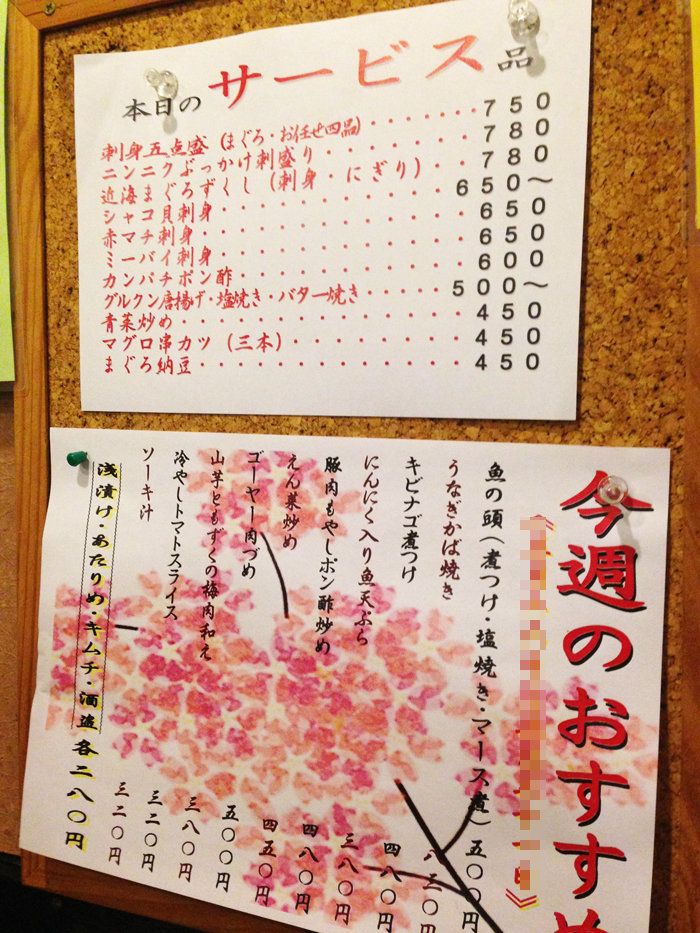 本日のサービス品
刺身五点盛（まぐろ・お任せ四品）・・・・・・750
ニンニクぶっかけ刺盛り・・・・・・780
近海まぐろずくし（刺身・にぎり）・・780
シャコ貝刺身・・・・・・・・・・650～
赤マチ刺身・・・・・・・・・・・650
ミーバイ刺身・・・・・・・・・・650
カンパチポン酢・・・・・・・・・600
グルクン唐揚げ・塩焼き・バター焼き・・・・・500～
青菜炒め・・・・・・・・・・・・450
マグロ串カツ（三本）・・・・・・・450
まぐろ納豆・・・・・・・・・・・450
今週のおすすめ
魚の頭（煮つけ・塩焼き・マース煮）五〇〇円
うなぎかば焼き 八三〇円
キビナゴ煮つけ 四八〇円
にんにく入り魚天ぷら 三八〇円
豚肉もやしポン酢炒め 四八〇円
えん菜炒め 四五〇円
ゴーヤー肉づめ 五〇〇円
山芋ともずくの梅肉和え 三八〇円
冷やしトマトスライス 三二〇円
ソーキ汁 三二〇円
浅漬け・あたりめ・キムチ・酒盗 各二八〇円